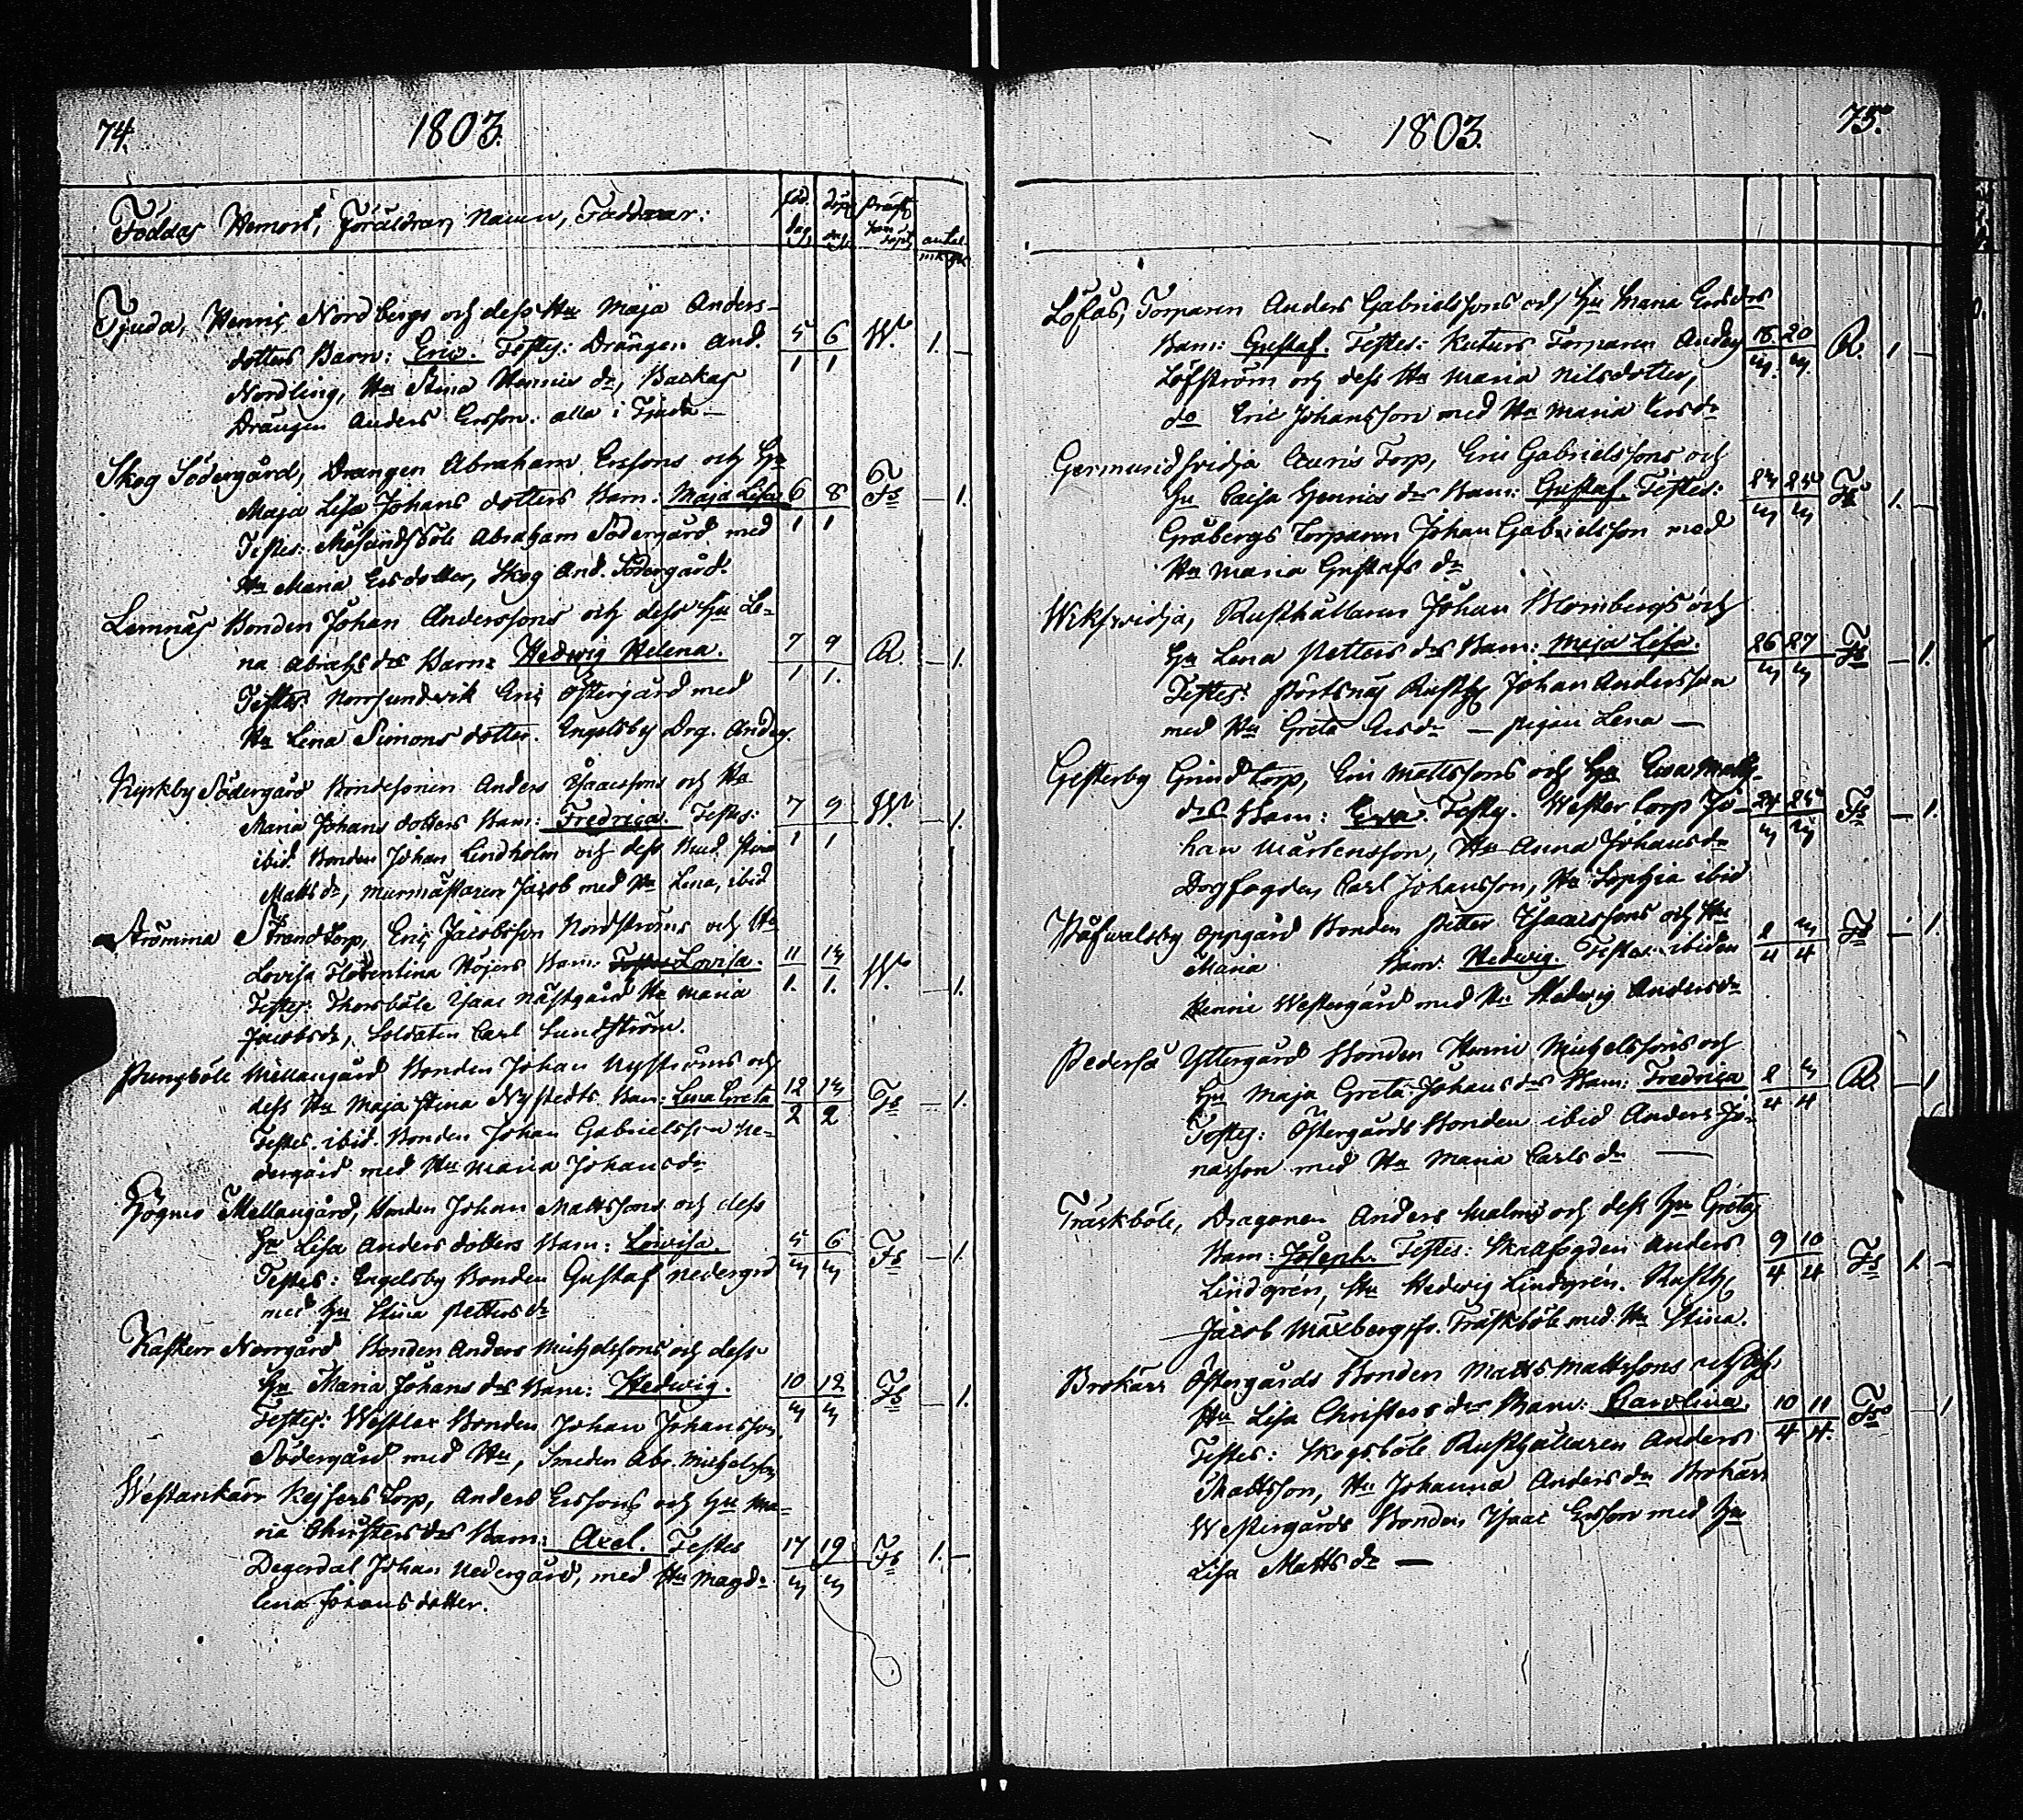 74. 1803.
Föddas Hemort, Föräldrar, Namn, Faddrar:
Tjuda, Henric Nordbergs och dess Hu Maja Anders-
dotters Barn: Eric. Testes: Drängen And. 5/1 6/1 W. 1. –
Nordling, Hu Stina Henrics dr, Backas
Drängen Anders Ersson. alla i Tjuda –
Skog Södergård, Drängen Abraham Erssons och Hu
Maja Lisa Johans dotters Barn: Maja Lisa 6/1 8/1 Fs – 1.
Testes: Måsundsböle Abraham Södergård med
Hu Maria Ersdotter, Skog And. Södergård.
Lemnäs Bonden Johan Anderssons och dess Hu Le-
na Abrahs drs Barn: Hedwig Helena. 7/1 9/1. R. – 1.
Testes. Norrsundwik Eric Östergård med
Hu Lena Simons dotter. Engelsby Drg. Anders.
Kyrkby Södergård Bondesonen Anders Isaacssons och Hu
Maria Johans dotters Barn: Fredrica. Testes: 7/1 9/1 W. – 1.
ibid. Bonden Johan Lindholm och dess Stina
Matts dr, murmästaren Jacob med Hu Lena, ibid
Strömma Strandtorp, Eric Jacobsson Nordströms och Hu
Lovisa Florentina Höjers Barn: Testes Lovisa. 11/1. 13/1. W. – 1.
Testes: Thorsböle Isaac Nästgård Hu Maria
Jacobs dr, Soldaten Carl Sundström.
Pungböle Mellangård Bonden Johan Nyströms och
dess Hu Maja Stina Nystedts Barn: Lena Greta 12/2 13/2 Fs – 1.
Testes. ibid. Bonden Johan Gabrielsson Ne-
dergård med Hu Maria Johans dr
Högmo Mellangård, Bonden Johan Mattssons och dess
Hu Lisa Anders dotters Barn: Lowisa. 5/3 6/3 Fs – 1.
Testes: Engelsby Bonden Gustaf Nedergrd
med Hu Stina Petters dr
Kasterr Norrgård Bonden Anders Michelssons och dess
Hu Maria Johans drs Barn: Hedwig. 10/3 12/3 Fs – 1.
Testes: Westlax Bonden Johan Johansson
Södergård med Hu, Smeden Abr. Michelsson
Westankärr Kejsers Torp, Anders Erssons och Hu Ma-
ria Christers drs Barn: Axel. Testes 17/3 19/3 Fs 1. –
Degerdal Johan Nedergård, med Hu Magd-
lena Johans dotter.
1803. 75.
Löfås, Torparen Anders Gabrielssons och Hu Maria Ersdrs
Barn: Gustaf. Testes: Torparen Anders 18/3. 20/3. R. 1 –
Löfström och dess Hu Maria Nilsdotter,
do Eric Johansson med Hu Maria Ersdr
Germundsvidja Torp, Eric Gabrielssons och
Hu Caisa Henrics drs Barn: Gustaf. Testes: 23/3 25/3 Fs 1. –
Gråbergs Torparen Johan Gabrielsson med
Hu Maria Gustafs dr
Wiksvidja, Rusthållaren Johan Blombergs och
Hu Lena Petters drs Barn: Maja Lisa. 26/3 27/3 Fs – 1.
Testes: Pörtsnäs Rusth. Johan Andersson
med Hu Greta Ersdr – pigan Lena –
Gesterby Grind torp, Eric Mattssons och Hu Ewa Matts-
drs Barn: Ewa. Testes. Wester torp Jo- 24/3 25/3 Fs – 1.
han Mårtensson, Hu Anna Johans dr
Carl Johansson, Hu Sophia ibid
Råfwalsby Oppgård Bonden Petter Isaacssons och Hu
Maria Barn: Hedwig. Testes. ibidem 2/4 3/4 Fs – 1.
Henric Westergård med Hu Hedwig Andersdr
Pederså Yttergård Bonden Henric Michelssons och
Hu Maja Greta Johans drs Barn: Fredrica 2/4 3/4 R. – 1
Testes: Östergårds Bonden ibid Anders Jo-
nasson med Hu Maria Carls dr –
Träskböle, Dragonen Anders Malms och dess Hu Gretas
Barn: Joseph. Testes: Skallfogden Anders 9/4 10/4 Fs 1. –
Lindgrén, Hu Hedwig Lindgrén. Rusth.
Jacob Träskböle med Hu Stina.
Brokärr Östergårds Bonden Matts Mattssons och dess
Hu Lisa Christers drs Barn: Carolina. 10/4 11/4. Fs – 1
Testes: Skogsböle Rusthållaren Anders
Mattsson, Hu Johanna Anders dr Brokärr
Westergårds Bonden Isaac Ersson med Hu
Lisa Matts dr –